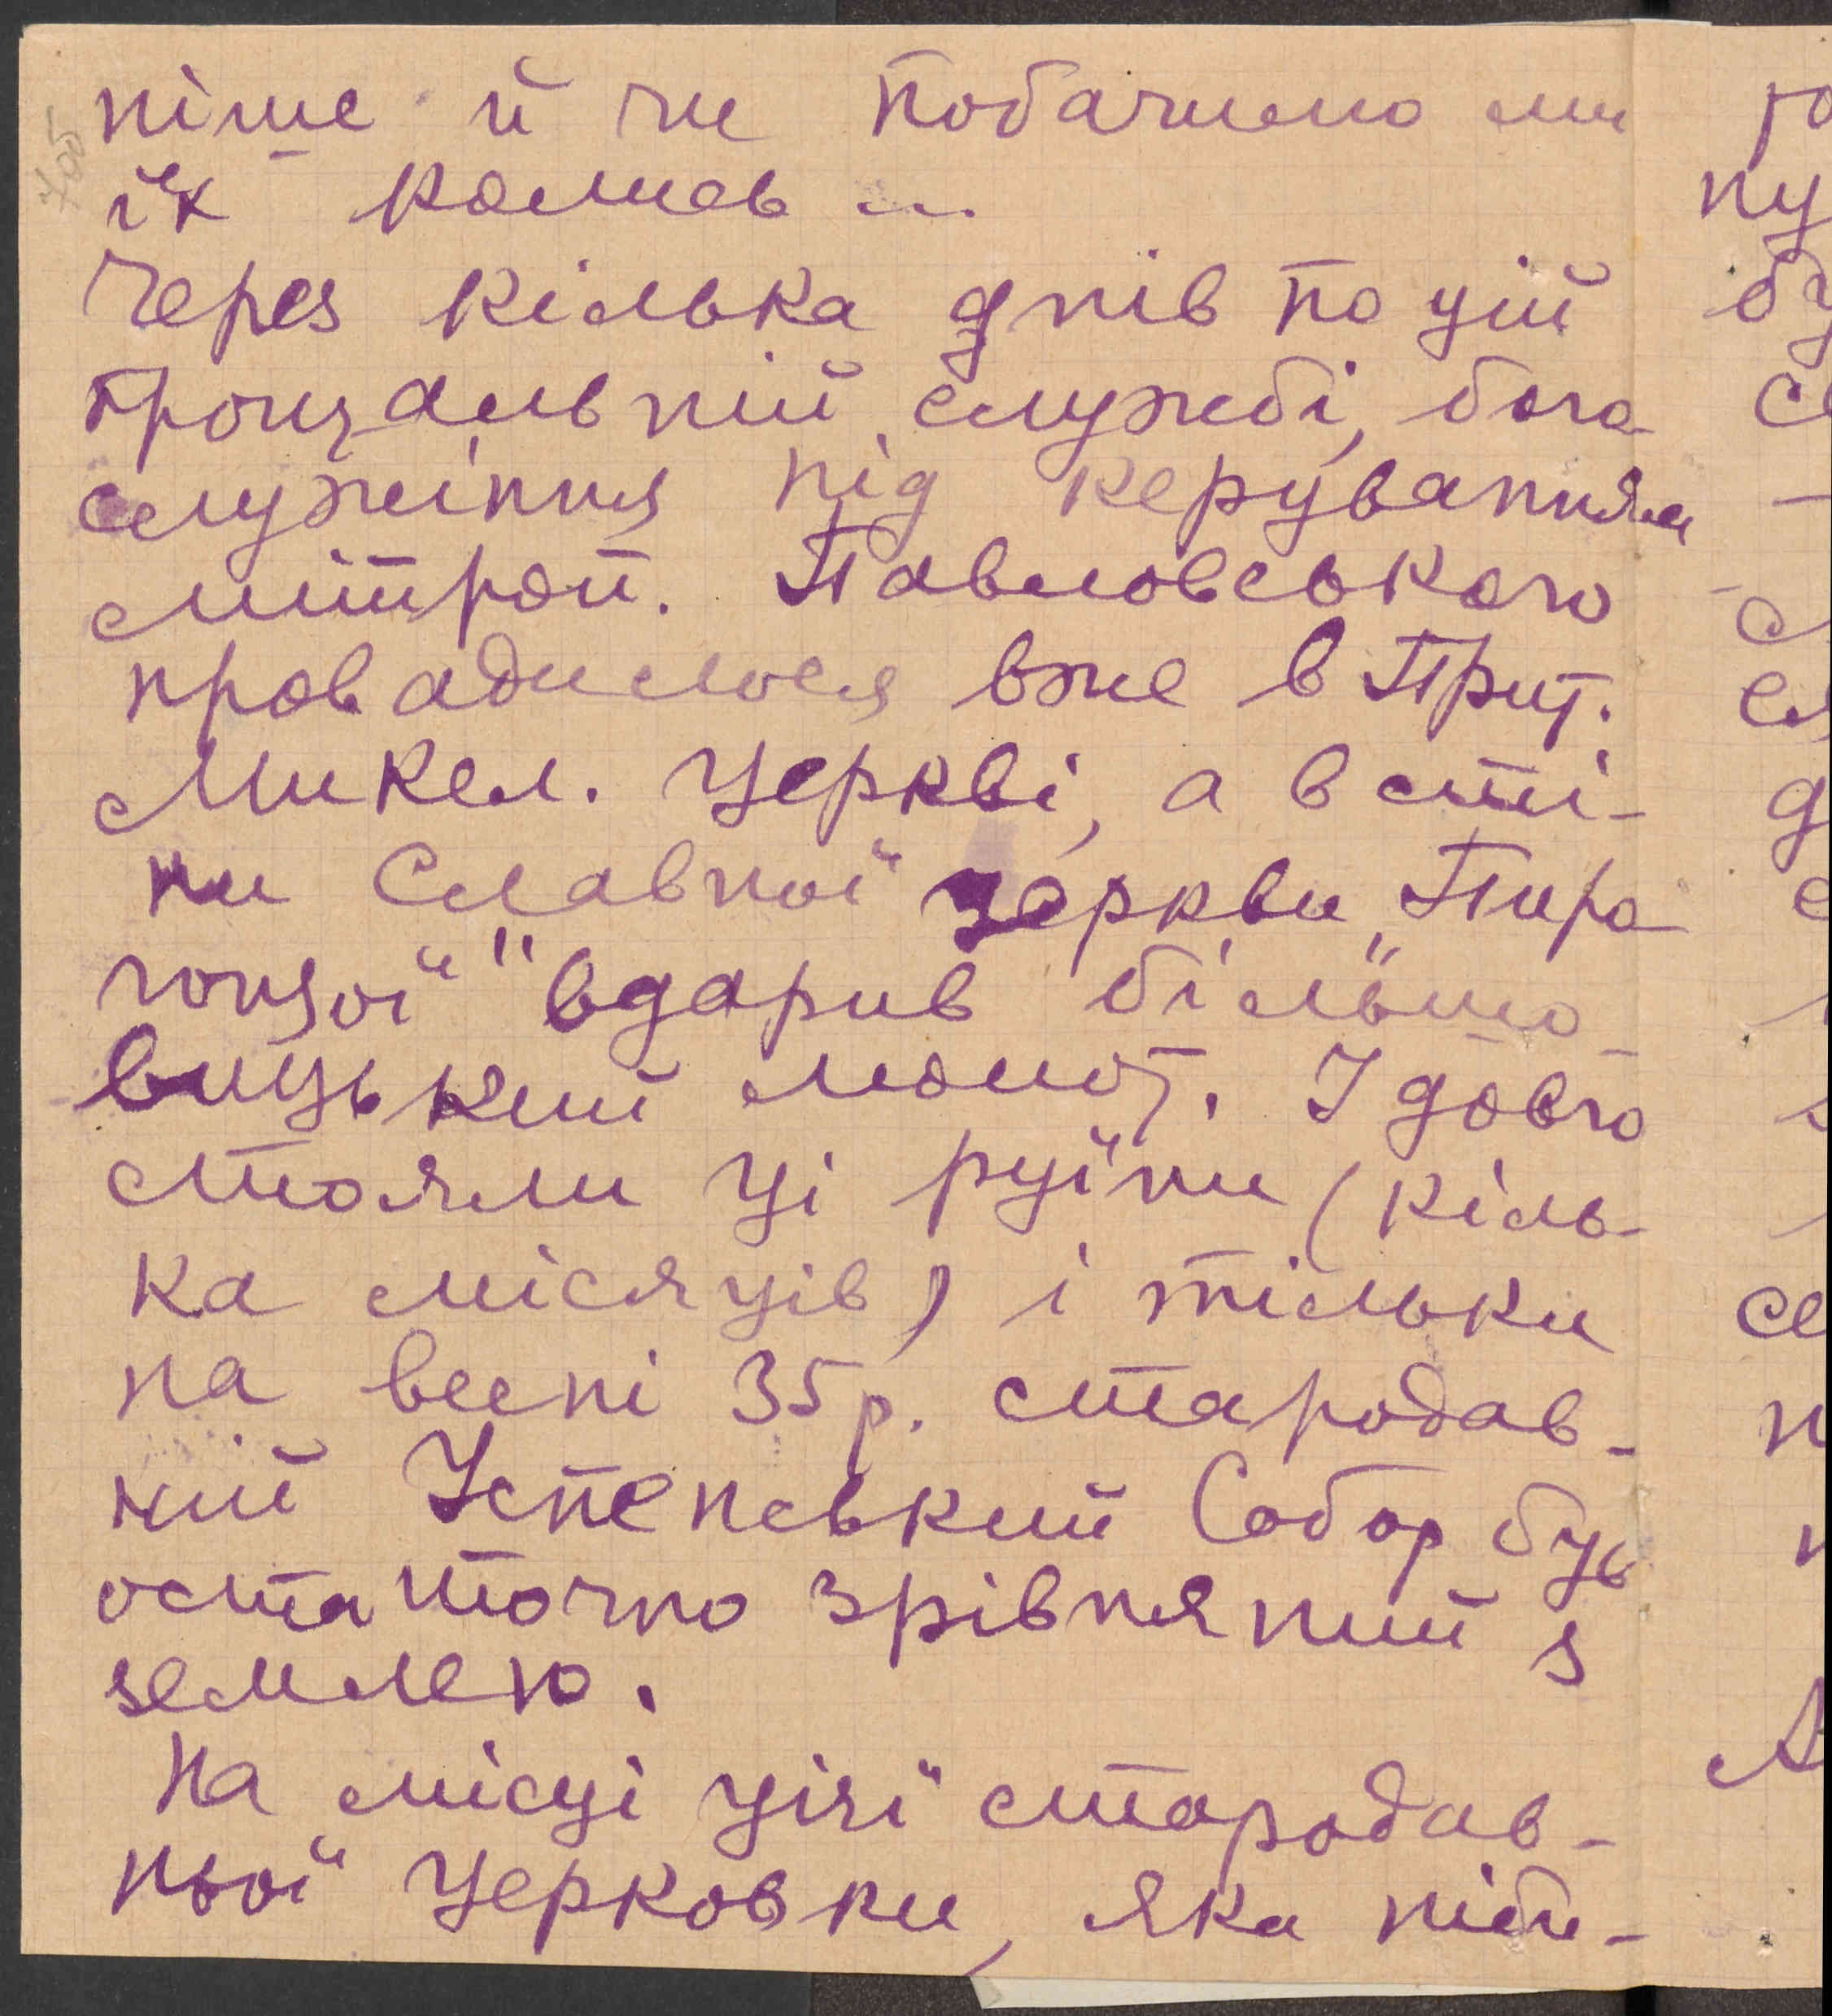 ніше й чи побачимо ми
їх колись ...
Через кілька днів по цій
прощальній службі, бого
служіння під керуванням
митроп. Павловського
провадилося вже в Прит.
Микол. Церкві, а в сті-
ни Славної церкви „Пиро
гощої" вдарив більшо
вицький молот. І довго
стояли ці руїни (кіль-
ка місяців) і тільки
на весні 35 р. стародав-
ній Успенський Собор був
остаточно зрівняний з
землею.
На місці цієї стародав-
ньої церковки, яка ніби-